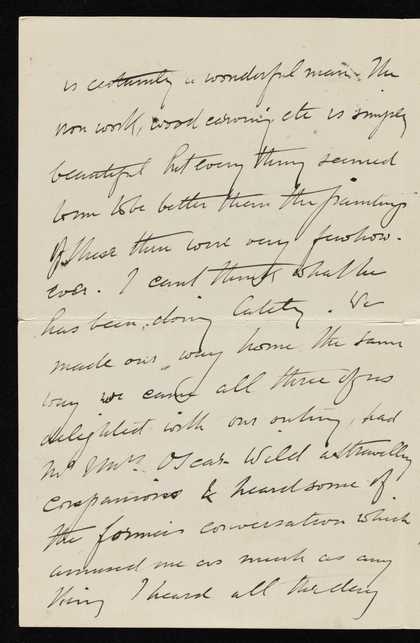 is certainly a wonderful man. The
iron work, wood carving etc is simply
beautiful but every thing seemed
to me to be better than the paintings
Of these there were very few how-
ever. I can't think what he
has been doing lately. We
made our way home the same
way we came all three of us
delighted with our outing, had
Mr & Mrs Oscar Wild as travelling
companions & heard some of
the former's conversation which
amused me as much as any
thing I heard all the day